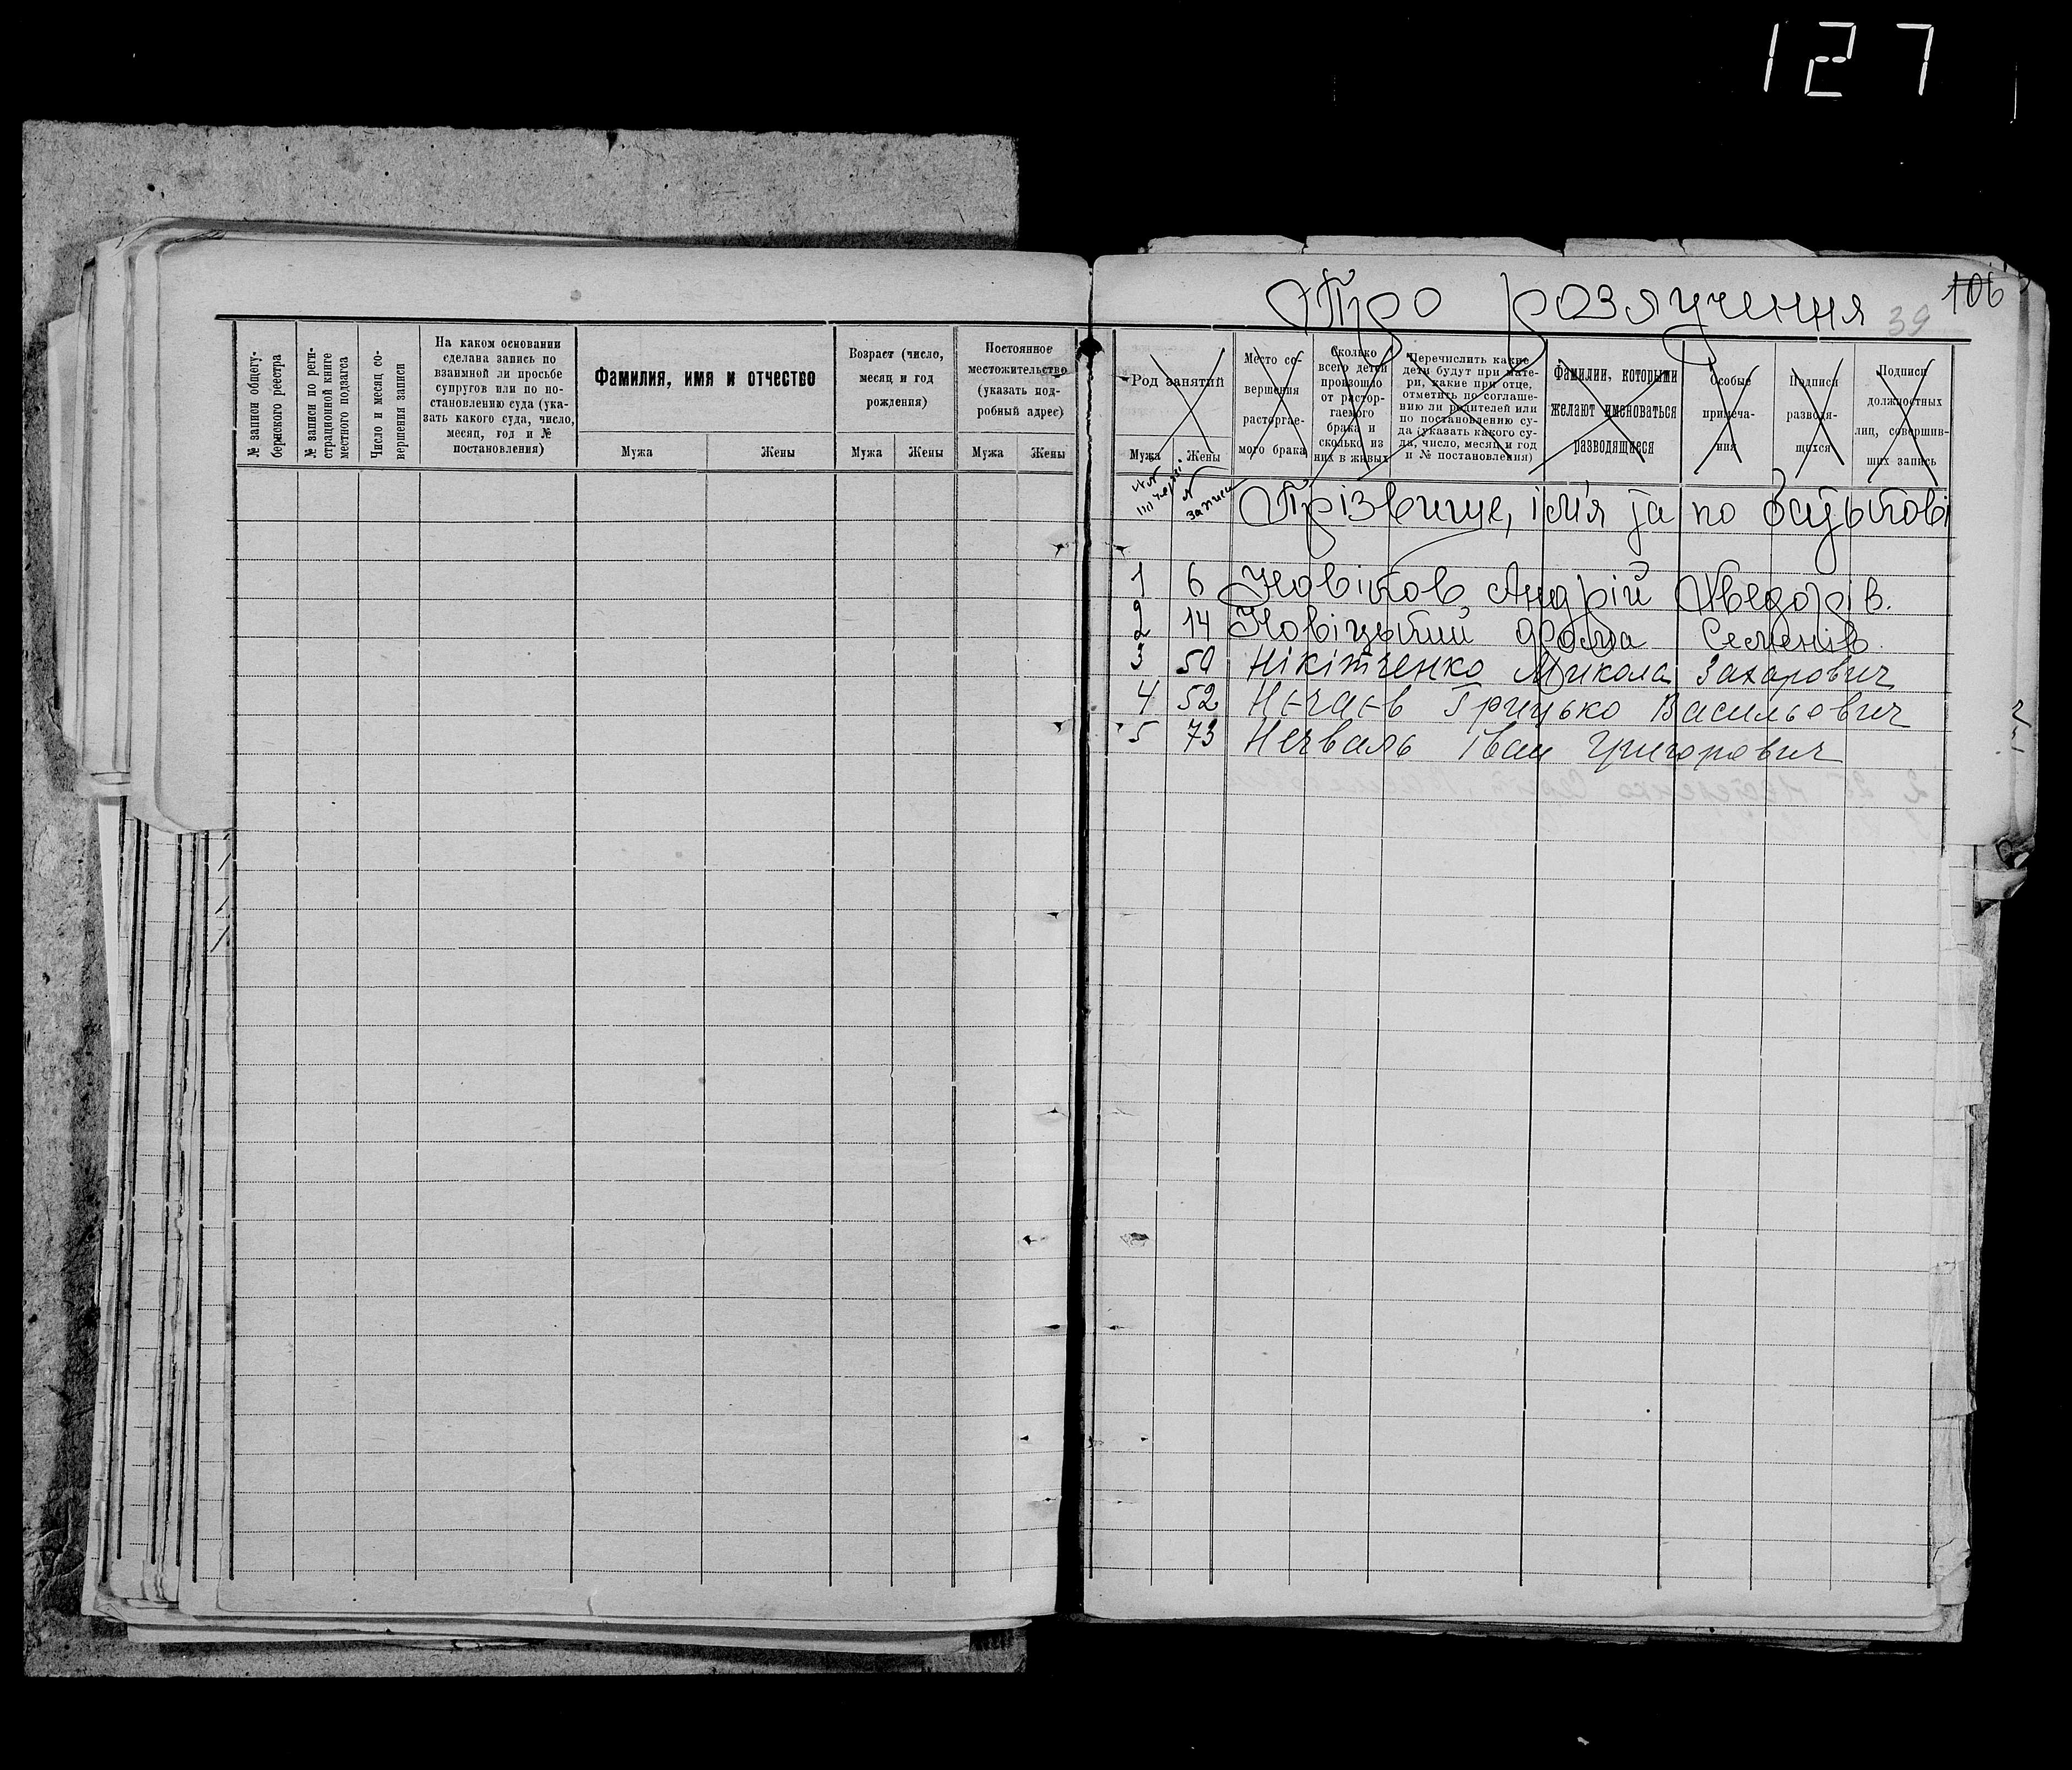 127
№ записи общегу-
бернского реестра
№ записи по реги-
страционной книге
местного подзагса
Число и месяц со-
вершения записи
На каком основании
сделана запись по
взаимной ли просьбе
супругов или по по-
становлению суда (ука-
зать какого суда, число,
месяц, год и №
постановления)
Фамилия, имя и отчество
Мужа Жены
Возраст (число,
месяц и год
рождения)
Мужа Жены
Постоянное
местожительство
(указать под-
робный адрес)
Мужа Жены
Про розлучення
106
39
Род занятий
Мужа Жены
Место со-
вершения
расторгае-
мого брака
Сколько
всего детей
произошло
от растор-
гаемого
брака и
сколько из
них в живых
Перечислить какие
дети будут при мате-
ри, какие при отце,
отметить по соглаше-
нию ли родителей или
по постановлению су-
да (указать какого су-
да, число, месяц и год
и № постановления)
Фамилии, которыми
желают именоваться
разводящиеся
Особые
примеча-
ния
Подписи
разводя-
щихся
Подписи
должностных
лиц, совершив-
ших запись
№ записи
Прізвище, ім'я та по батькові
1 6 Новіков Андрій Хведорів.
2 14 Новіцький Семенів.
3 50 Нікітченко Микола Захарович
4 52 Нєчаєв Грицько Васильович
5 73 Нечваль Іван Григорович